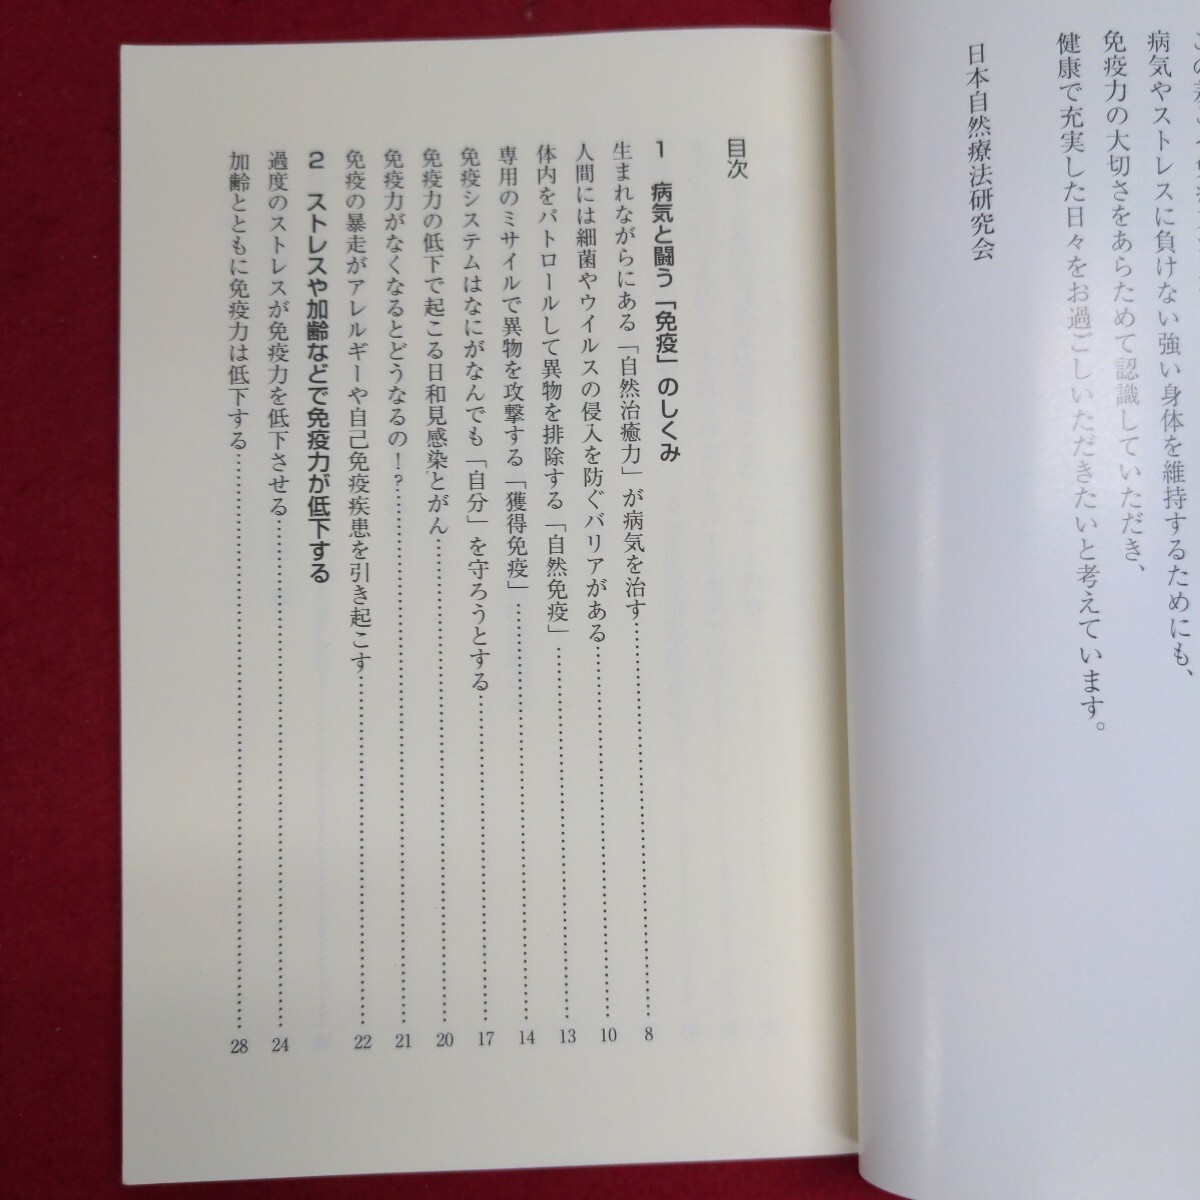 病気やストレスに負けない強い身体を維持するためにも、
免疫力の大切さをあらためて認識していただき、
健康で充実した日々をお過ごしいただきたいと考えています。
日本自然療法研究会
目次
1 病気と闘う「免疫」のしくみ
生まれながらにある「自然治癒力」が病気を治す……………………8
人間には細菌やウイルスの侵入を防ぐバリアがある……………………10
体内をパトロールして異物を排除する「自然免疫」……………………13
専用のミサイルで異物を攻撃する「獲得免疫」……………………14
免疫システムはなにがなんでも「自分」を守ろうとする……………………17
免疫力の低下で起こる日和見感染とがん……………………20
免疫力がなくなるとどうなるの!?……………………21
免疫の暴走がアレルギーや自己免疫疾患を引き起こす……………………22
2 ストレスや加齢などで免疫力が低下する
過度のストレスが免疫力を低下させる……………………24
加齢とともに免疫力は低下する……………………28